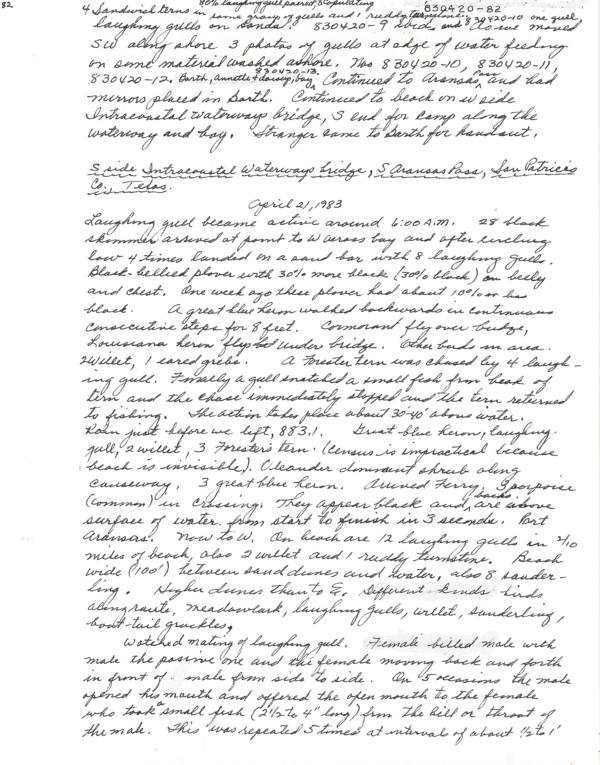 82
80% laughing gull paired, 3 copulating
4 Sandwich terns in same group of gulls and 1 ruddy turnstone. 830420-82
laughing gulls on sands. 830420-9 ibid, and 830420-10 one gull. As we moved
SW along shore 3 photos of gulls at edge of water feeding
on some material washed ashore. Nos 830420-10, 830420-11,
830420-12. Barth, Annette & daisey, bay 830420-13. Continued to Aransas Pass and had
mirrors placed in Barth. Continued to beach on W side
Intracoastal Waterways bridge, S end for camp along the
waterway and bay. Stranger came to Barth for handout.
S side Intracoastal Waterways bridge, S Aransas Pass, San Patricio
Co., Texas.
April 21, 1983
Laughing gull became active around 6:00 A.M. 28 black
skimmer arrived at point to W across bay and after circling
low 4 times landed on a sand bar with 8 laughing gulls.
Black-bellied plover with 30% more black (30% black) on belly
and chest. One week ago these plover had about 10% or less
black. A great blue heron walked backwards in continuous
consecutive steps for 8 feet. Cormorant fly over bridge,
Louisiana heron fly under bridge. Other birds in area.
2 willet, 1 eared grebe. A Forester tern was chased by 4 laugh-
ing gull. Finally a gull snatched a small fish from beak of
tern and the chase immediately stopped and the tern returned
to fishing. The action takes place about 30-40' above water.
Rain just before we left, 883.1. Great blue heron, laughing
gull, 2 willet, 3 Forester's tern. (Census is impractical because
beach is invisible). Oleander dominant shrub along
causeway, 3 great blue heron. Arrived Ferry, 3 porpoise
(common) in crossing. They appear black and backs are above
surface of water from start to finish in 3 seconds. Port
Aransas. Now to W. On beach are 12 laughing gulls in 2/10
miles of beach, also 2 willet and 1 ruddy turnstone. Beach
wide (100') between sand dunes and water, also 8 sander-
ling. Higher dunes than to E. Different kinds birds
along route, meadowlark, laughing gulls, willet, sanderling,
boat-tail grackles.
Watched mating of laughing gull. Female billed male with
male the passive one and the female moving back and forth
in front of male from side to side. On 5 occasions the male
opened his mouth and offered the open mouth to the female
who took a small fish (2 1/2 to 4" long) from the bill or throat of
the male. This was repeated 5 times at interval of about 1/2 to 1'